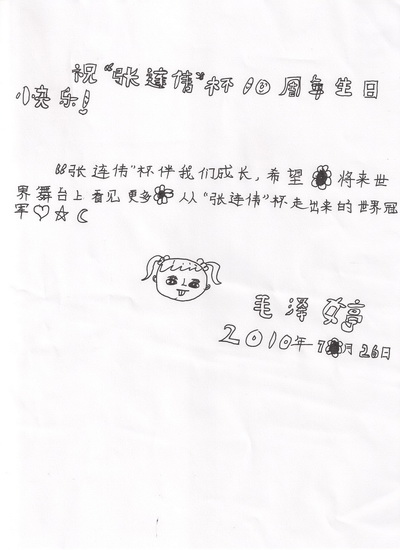 祝“张连伟”杯10周年生日
快乐!
“张连伟”杯伴我们成长,希望将来世
界舞台上看见更多从“张连伟”杯走出来的世界冠
军♡☆☾
毛泽婷
2010年7月26日